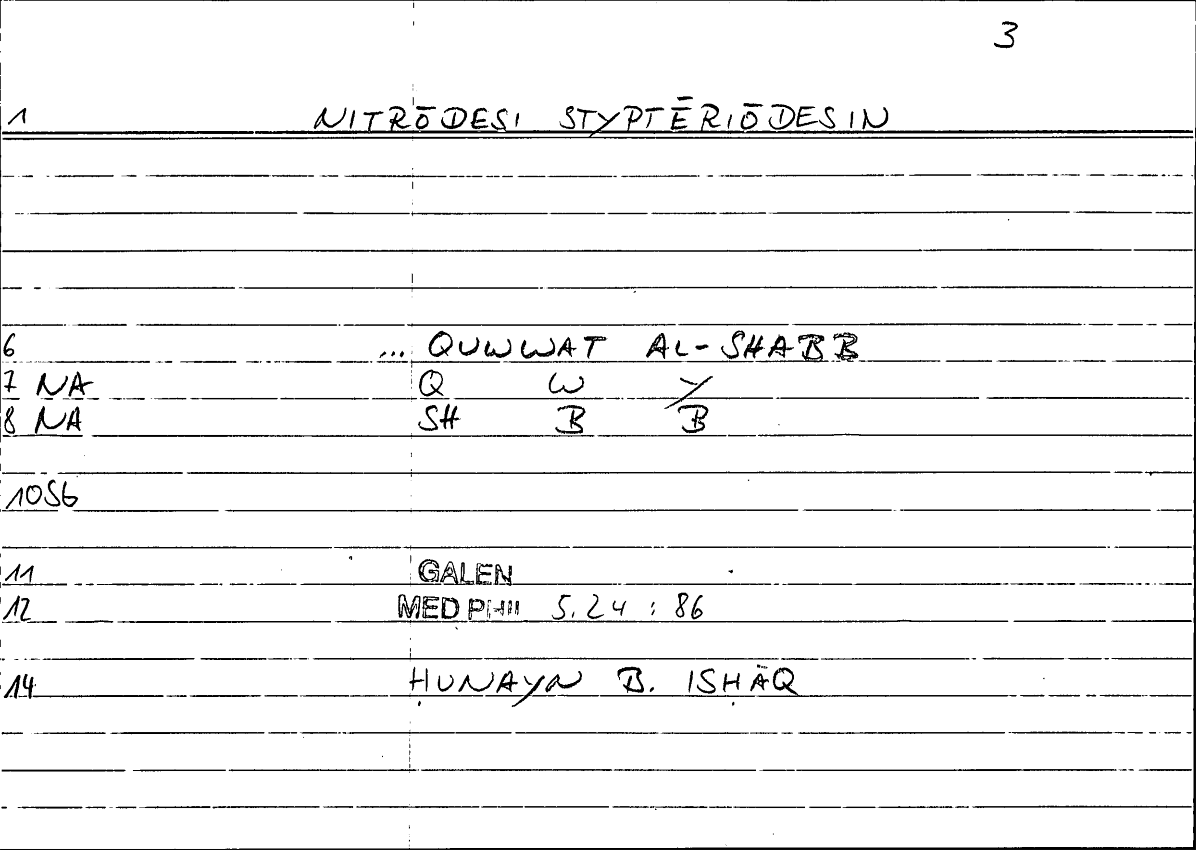 3
1 NITRŌDESI STYPTĒRIŌDESIN
6 ... QUWWAT AL-SHABB
7 NA Q W Y
8 NA SH B B
10S6
11 GALEN
12 MED PHIL 5.24 : 86
14 ḤUNAYN B. ISḤĀQ